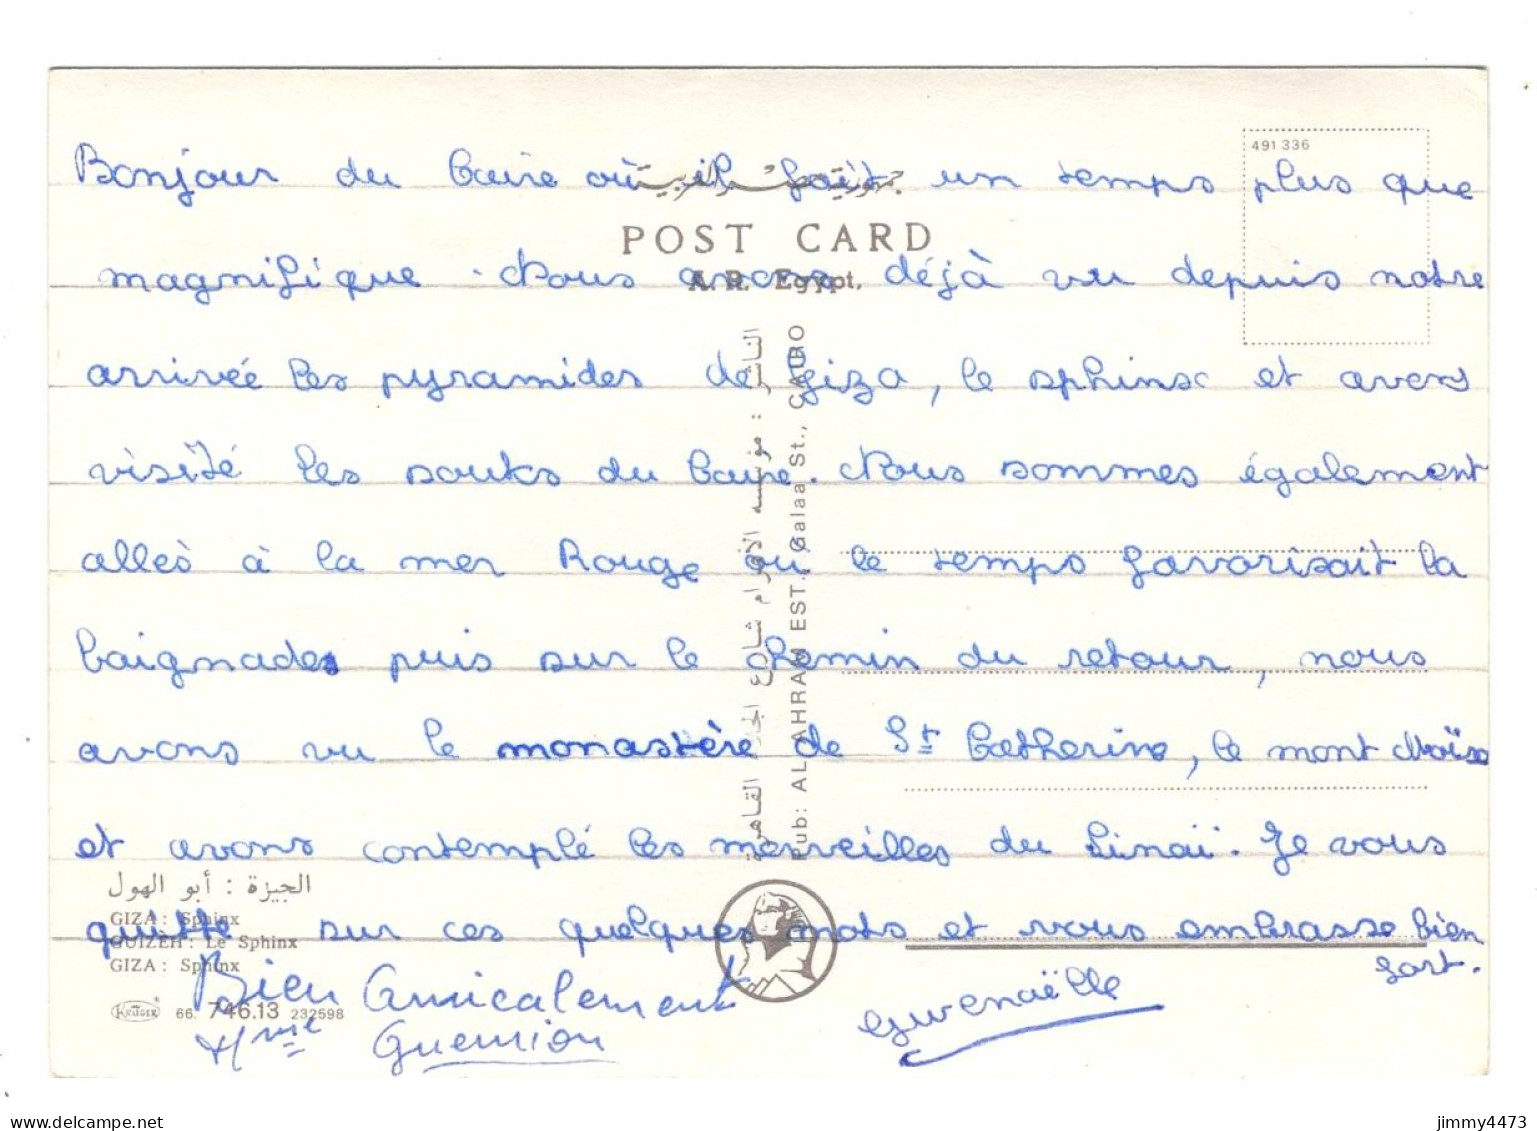 491 336
جمهورية مصر العربية
POST CARD
A. R. Egypt.
Bonjour du Caire où il fait un temps plus que
magnifique. Nous avons déjà vu depuis notre
arrivée les pyramides de Giza, le sphinx et avons
visité les souks du Caire. Nous sommes également
allés à la mer Rouge ou le temps favorisait la
baignades puis sur le chemin du retour, nous
avons vu le monastère de St Catherine, le mont Moïse
et avons contemplé les merveilles du Sinaï. Je vous
quitte sur ces quelques mots et vous embrasse bien
fort.
Gwenaëlle
Bien Amicalement
Mme
الناشر : مؤسسه الأهرام شارع الجلاء القاهرة
Pub: AL AHRAM EST., Galaa St., CAIRO
الجيزة : أبو الهول
GIZA : Sphinx
GUIZÈH : Le Sphinx
GIZA : Sphinx
KRÜGER 66. 746.13 232598
www.delcampe.net
jimmy4473